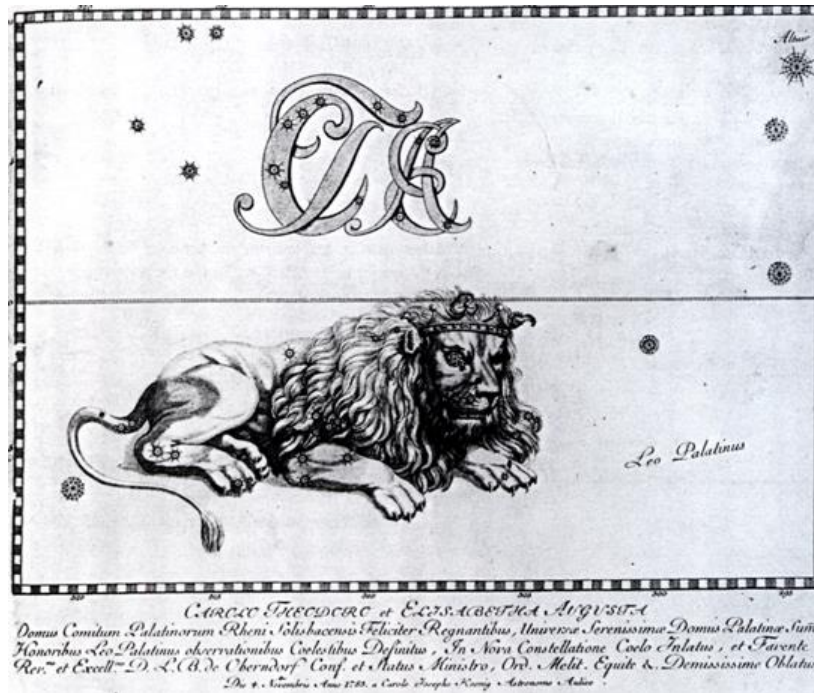 Altair
Leo Palatinus
CAROLO THEODORO et ELISABETHA AVGVSTA
Domus Comitum Palatinorum Rheni Solisbacensis Feliciter Regnantibus, Universæ Serenissimæ Domus Palatinæ
Honoribus Leo Palatinus observationibus Coelestibus Definitus, In Nova Constellatione Coelo Inlatus, et Favente
Rev.mo et Excell.mo D. L. B. de Oberndorf Conf. et Status Ministro, Ord. Melit. Equite &. Demississime Oblatus
Die 4. Novembris Anno 1785. a Carolo Josepho Koenig Astronomo Aulico.